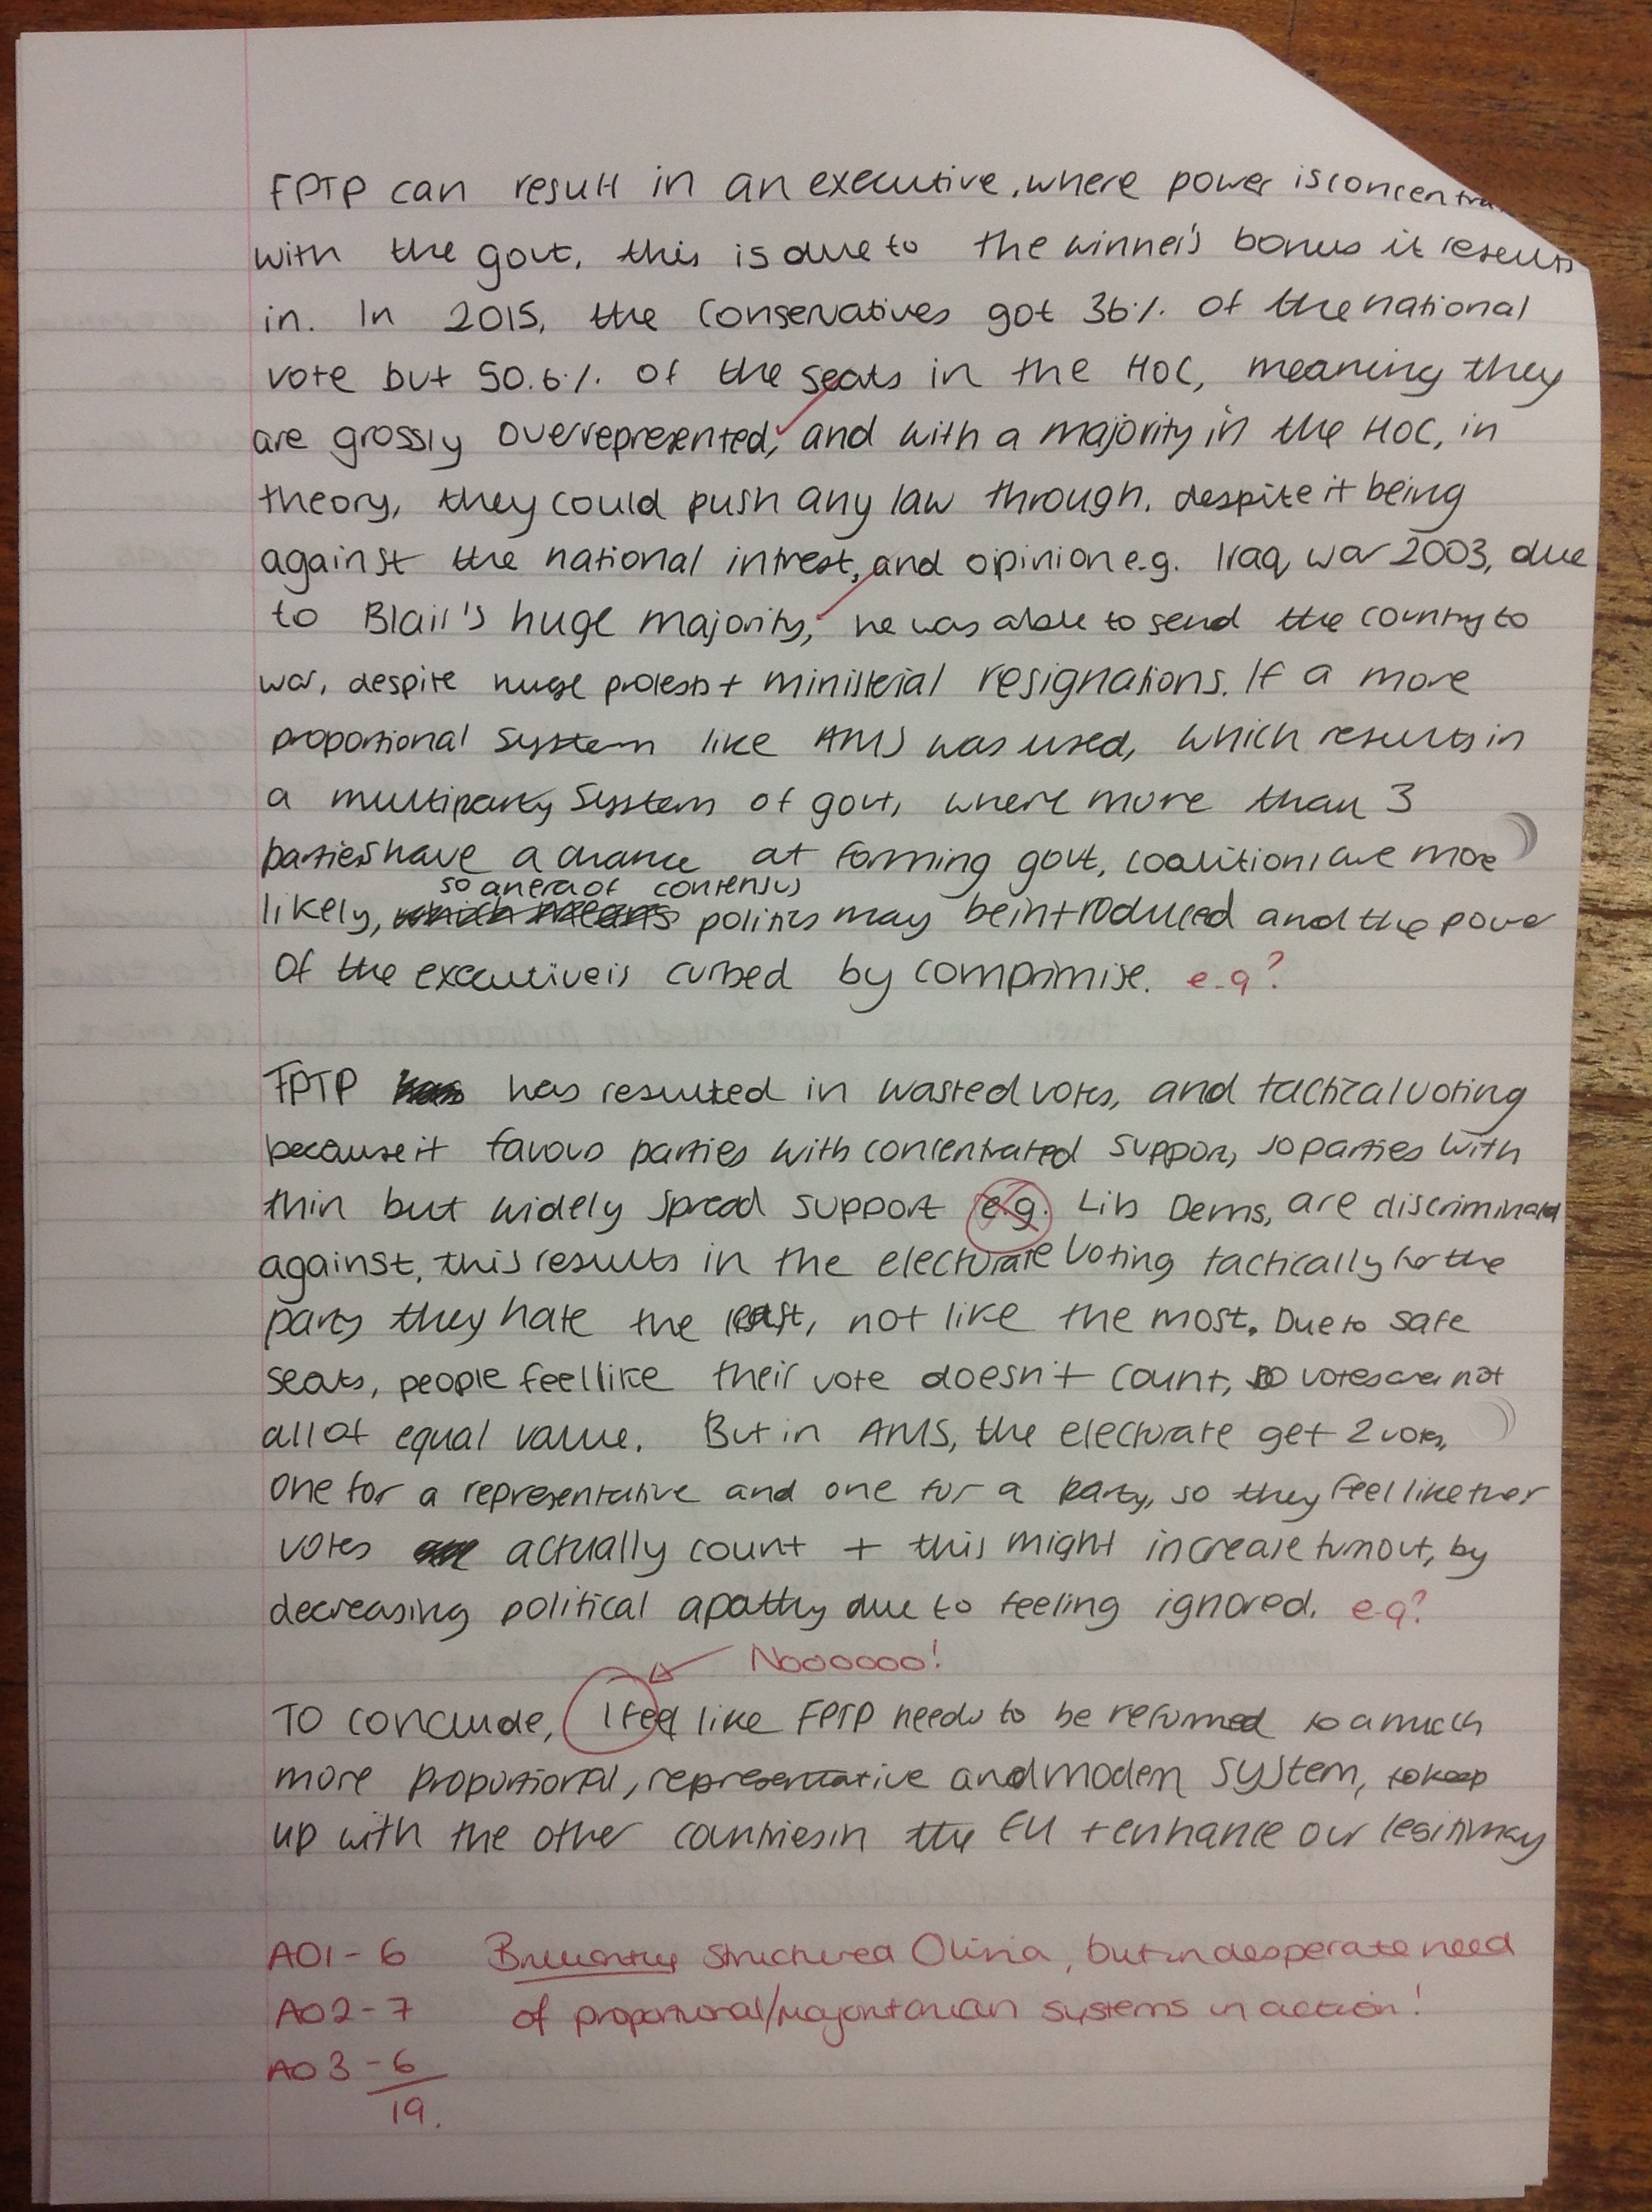 FPTP can result in an executive, where power is concentra
with the govt, this is due to the winner's bonus it results
in. In 2015, the Conservatives got 36% of the national
vote but 50.6% of the seats in the HOC, meaning they
are grossly overrepresented, and with a majority in the HOC, in
theory, they could push any law through, despite it being
against the national intrest, and opinion e.g. Iraq war 2003, due
to Blair's huge majority, he was able to send the country to
war, despite huge protests + ministerial resignations. If a more
proportional system like AMS was used, which results in
a multiparty system of govt, where more than 3
parties have a chance at forming govt, coalitions are more
so an era of consensus
likely, which means politics may be introduced and the power
of the executive is curbed by comprimise. e.g?
FPTP has resulted in wasted votes, and tactical voting
because it favours parties with concentrated support, so parties with
thin but widely spread support e.g. Lib Dems, are discriminated
against, this results in the electorate voting tactically for the
party they hate the least, not like the most. Due to safe
seats, people feel like their vote doesn't count, so votes are not
all of equal value. But in AMS, the electorate get 2 votes,
one for a representative and one for a party, so they feel like their
votes actually count + this might increase turnout, by
decreasing political apathy due to feeling ignored. e.g?
Noooooo!
To conclude, I feel like FPTP needs to be reformed to a much
more proportional, representative and modern system, to keep
up with the other countries in the EU + enhance our legitimacy
AO1 - 6 Brilliantly structured Olivia, but in desperate need
AO2 - 7 of proportional/majoritarian systems in action!
AO3 - 6
19.